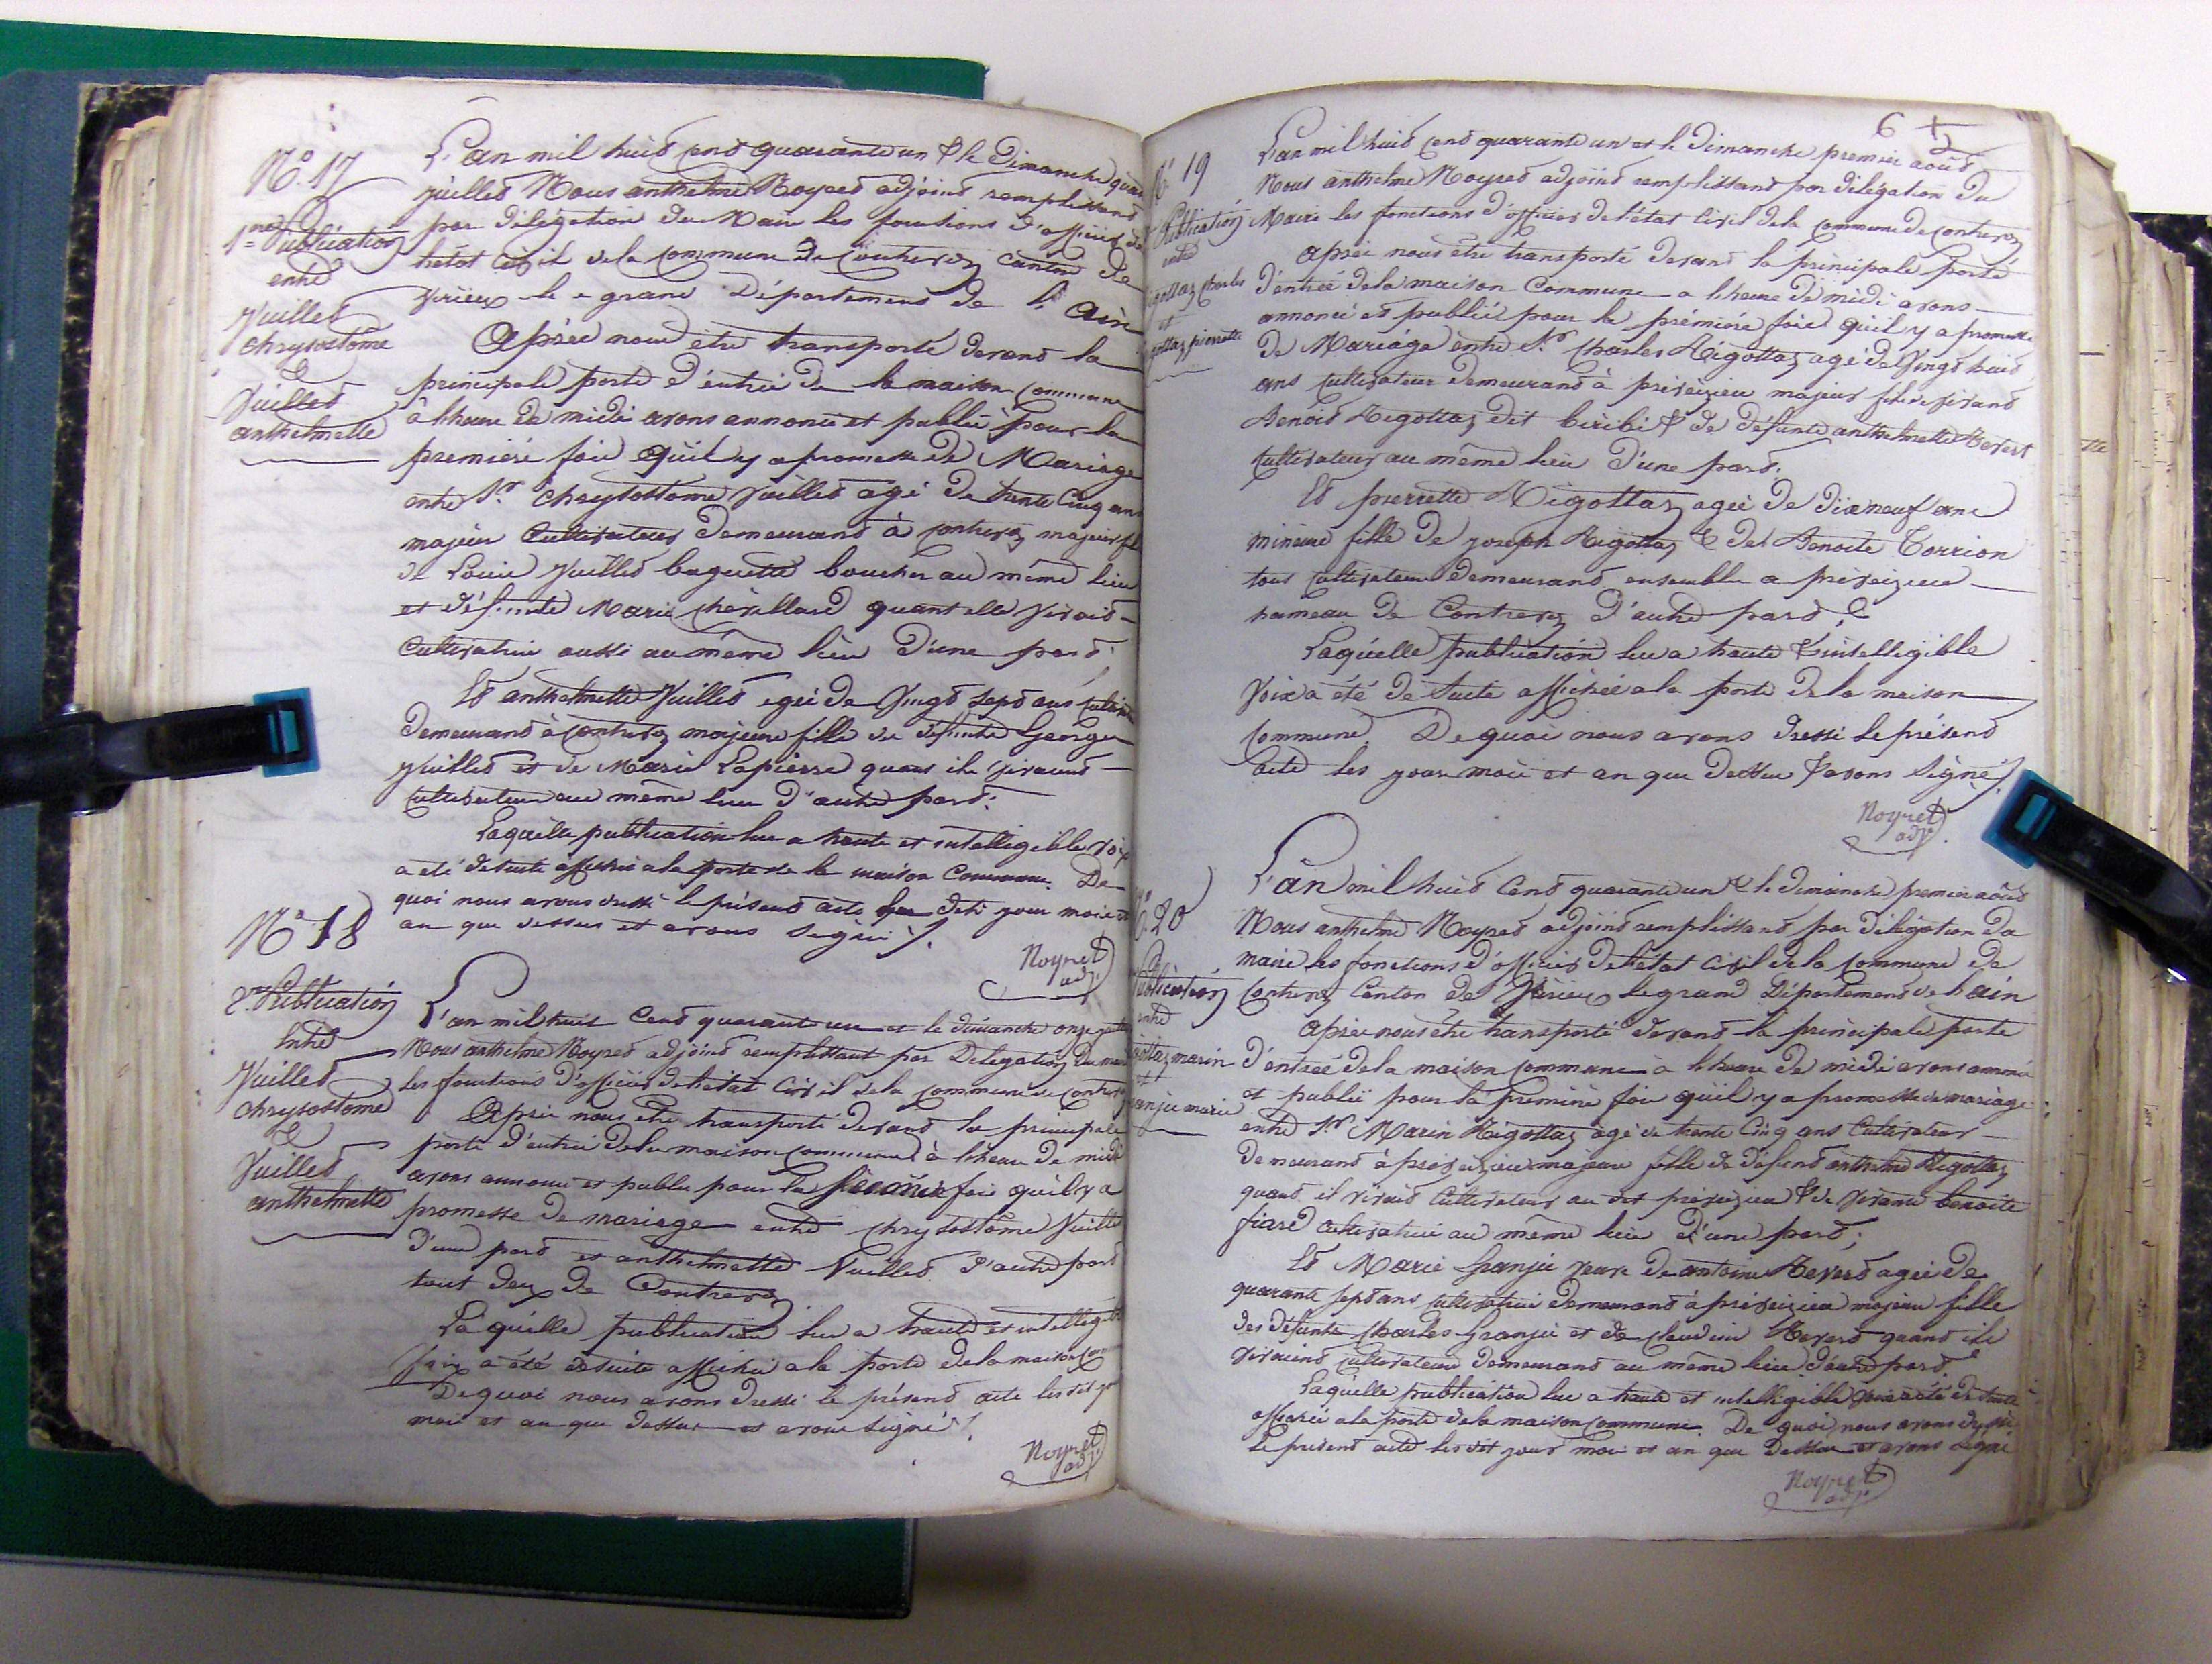 N.° 17
1.re Publication
entre
Juillet
chrysostôme
&
Juillet
anthelmette
L'an mil huit cent quarante un & le Dimanche
juillet Nous anthelme Noyret adjoint remplissant
par délégation du Maire les fonctions d'officier de
l'etat civil de la Commune de Contrevoz canton de
Virieu le grand Département de l'Ain
Après nous être transporté devant la
principale porte d'entrée de la maison commune
à l'heure de midi avons annoncé et publié pour la
premiére fois qu'il y a promesse de Mariage
entre S.r Chrysostome Juillet agé de trente cinq ans
majeur Cultivateur demeurant à contrevoz majeur fils
de Louis Juillet baguette boucher au même lieu
et défunte Marie Chevillard quant elle vivait
Cultivatrice aussi au même lieu D'une part.
Et anthelmette Juillet agée de Vingt sept ans
demeurant à contrevoz majeure fille de défunt George
Juillet et de Marie Lapierre quant ils vivaient
cultivateurs au même lieu d'autre part.
Laquelle publication lue a haute et intelligible voix
a été de suite affichée a la porte de la maison Commune. De
quoi nous avons dressé le présent acte les dits jour mois et
an que dessus et avons signé /.
Noyret
adj.
N.° 18
2.me Publication
Entre
Juillet
chrysostome
&
Juillet
anthelmette
L'an mil huit Cent quarante un et le dimanche onze juillet
Nous anthelme Noyret adjoint remplissant par Délégation du maire
les fonctions d'officier de l'état Civil de la commune de Contrevoz
Après nous être transporté devant la principale
porte d'entrée de la maison commune à l'heure de midi
avons annoncé et publié pour la seconde fois qu'il y a
promesse de mariage entre Chrysostôme Juillet
d'une part et anthelmette Juillet d'autre part
tout deux de Contrevoz
Laquelle publication lue a haute et intelligible
Voix a été de suite affichée a la porte de la maison
De quoi nous avons dressé le présent acte les dit jour
mois et an que dessus et avons signé /.
Noyret
adj.
6
N.° 19
Publication
entre
Charles
et
pierrette
L'an mil huit cent quarante un et le dimanche premier août
Nous anthelme Noyret adjoint remplissant par délégation du
Maire les fonctions d'officier de l'état Civil de la Commune de Contrevoz
Après nous être transporté devant la principale porte
d'entrée de la maison Commune a l'heure de midi avons
annoncé et publié pour la prémiére fois qu'il y a promesse
de Mariage entre S.r Charles Rigottaz agé de Vingt huit
ans cultivateur demeurant à préveizieu majeur fils de vivant
Benoit Rigottaz dit biribi & de défunte anthelmette Revert
cultivateur au même lieu D'une part.
Et pierrette Rigottaz agée de dix neuf ans
mineure fille de joseph Rigottaz & de Benoite Torrion
tous cultivateurs demeurant ensemble a préveizieu
hameau de Contrevoz d'autre part.
Laquelle publication lue a haute & intelligible
Voix a été de suite affichée a la porte de la maison
Commune. De quoi nous avons dressé le présent
acte les jour mois et an que dessus & avons signé /.
Noyret
adj.
N.° 20
Publication
entre
marin
et
marie
L'an mil huit Cent quarante un & le dimanche premier août
Nous anthelme Noyret adjoint remplissant par délégation du
maire les fonctions d'officier de l'état Civil de la Commune de
Contrevoz Canton de Virieu le grand Département de l'ain
Après nous être transporté devant la principale porte
d'entrée de la maison commune à l'heure de midi avons annoncé
et publié pour la premiére fois qu'il y a promesse de mariage
entre S.r Marin Rigottaz agé de trente Cinq ans Cultivateur
demeurant à préveizieu majeur fille de défunt anthelme Rigottaz
quant il vivait Cultivateur au dit préveizieu & de vivante benoite
fiard cultivatrice au même lieu d'une part;
Et Marie Granjie veuve de antoine Revert agée de
quarante sept ans cultivatrice demeurant à préveizieu majeure fille
des défunts Charles Granjie et de claudine Revert quant ils
vivaient cultivateurs demeurant au même lieu d'autre part.
Laquelle publication lue a haute et intelligible Voix a été de suite
affichée a la porte de la maison Commune. De quoi nous avons dressé
le présent acte les dit jour mois et an que dessus et avons signé
Noyret
adj.